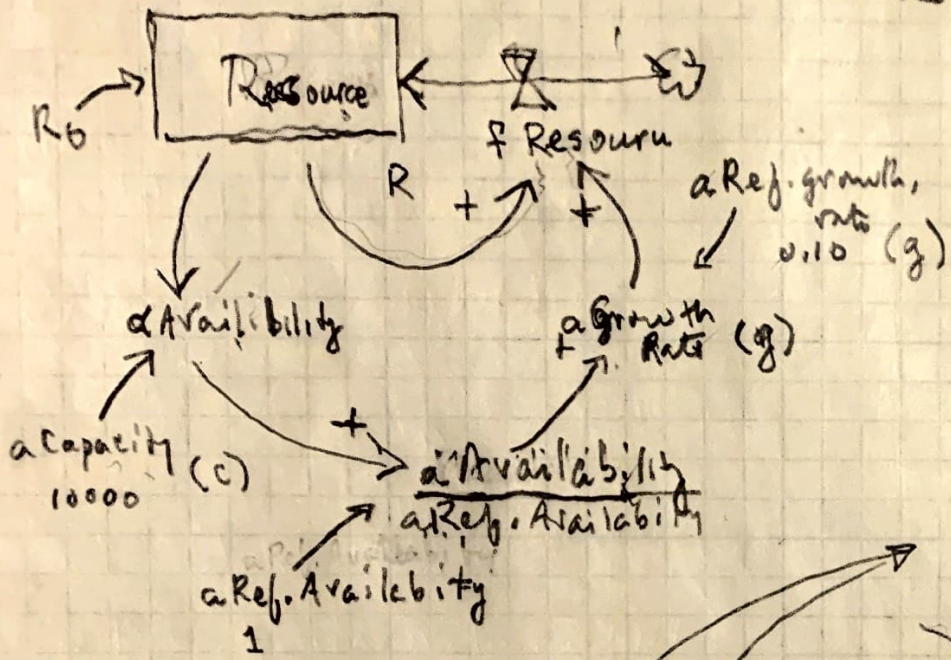 Ressource
R0
f Resouru
R
+
+
a Ref. growth,
rate
0.10 (g)
a Availibility
a Growth
+ Rate (g)
a Capacity (C)
10000
+
a Availability
a Ref. Availabity
a Ref. Availabity
1